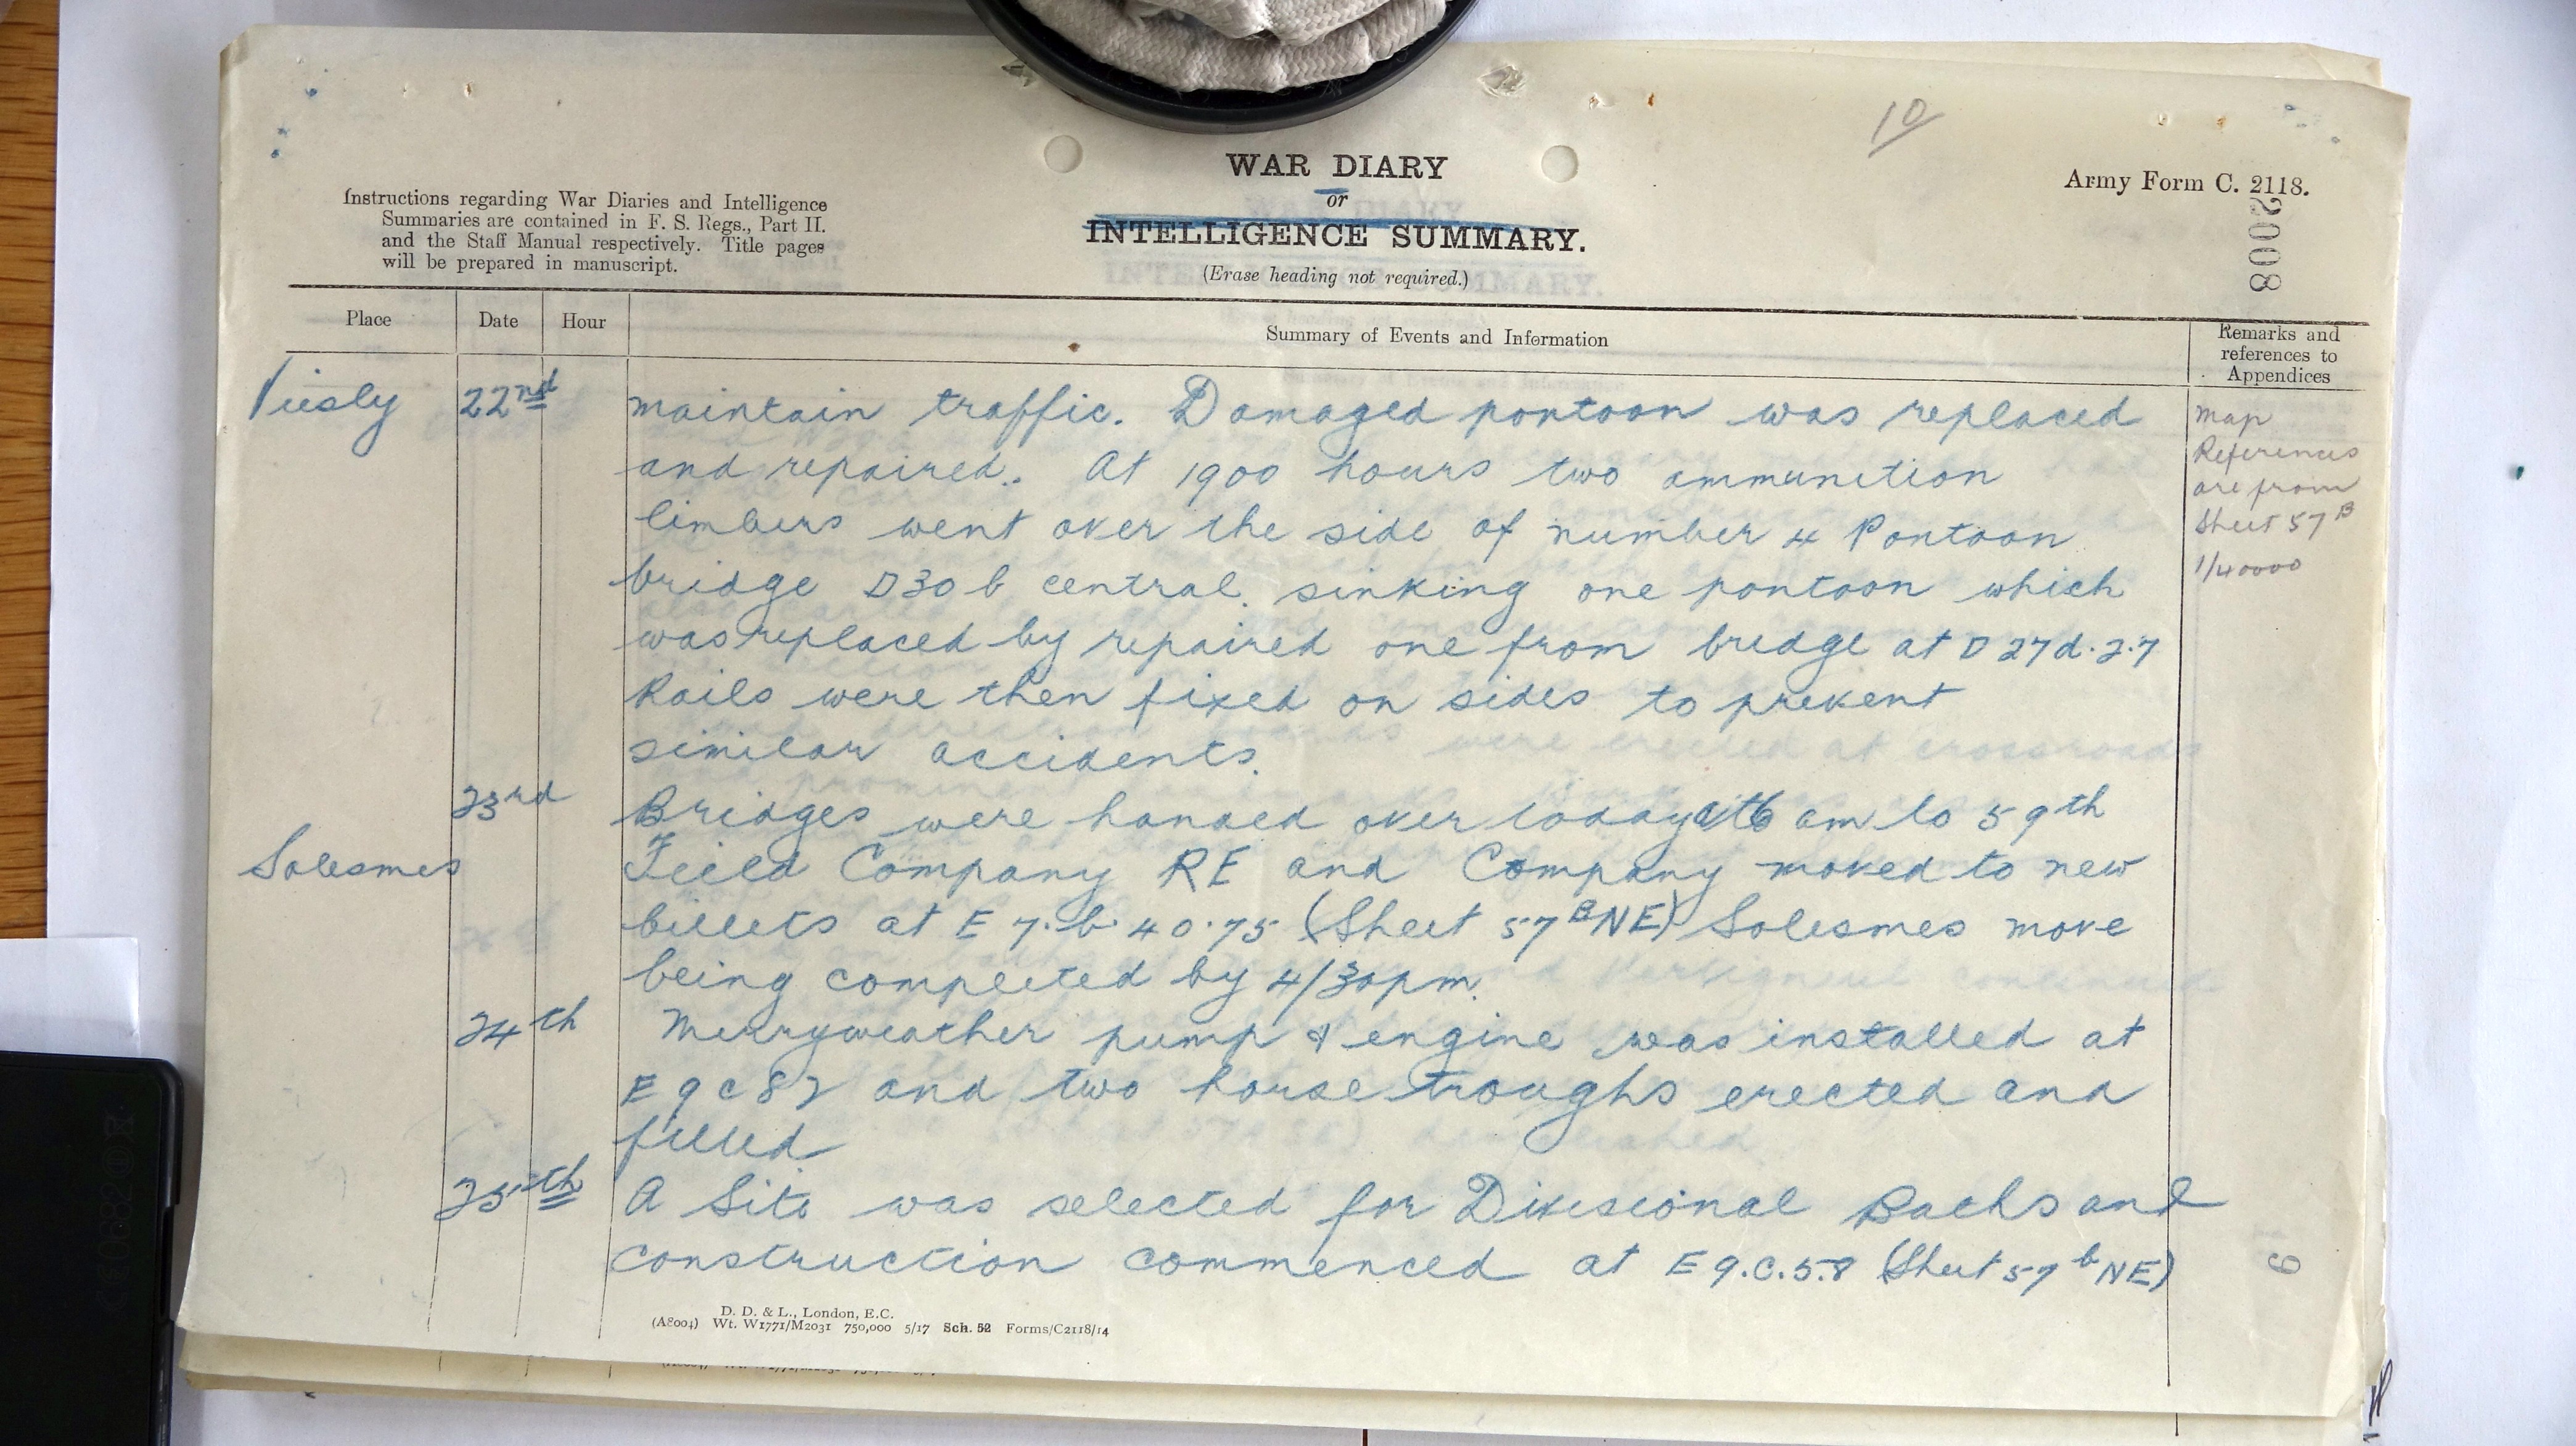 10
WAR DIARY
or
INTELLIGENCE SUMMARY.
(Erase heading not required.)
Instructions regarding War Diaries and Intelligence
Summaries are contained in F. S. Regs., Part II.
and the Staff Manual respectively. Title pages
will be prepared in manuscript.
Army Form C. 2118.
2008
Place Date Hour Summary of Events and Information Remarks and
references to
Appendices
Viesly 22nd maintain traffic. Damaged pontoon was replaced
and repaired. At 1900 hours two ammunition
limbers went over the side of number 4 Pontoon
bridge D30 b central. sinking one pontoon which
was replaced by repaired one from bridge at D 27d.2.7
Rails were then fixed on sides to prevent
similar accidents.
23rd Bridges were handed over today at 6 am to 59th
Solesmes Field Company RE and Company moved to new
billets at E 7.b 40.75 (Sheet 57 B NE) Solesmes move
being completed by 4/30pm.
24th Merryweather pump & engine was installed at
E 9 c 82 and two horse troughs erected and
filled
25th A Site was selected for Divisional Baths and
construction commenced at E 9.c.5.8 (Sheet 57 b NE)
Map
References
are from
Sheet 57 B
1/40000
D. D. & L., London, E.C.
(A8004) Wt. W1771/M2031 750,000 5/17 Sch. 52 Forms/C2118/14